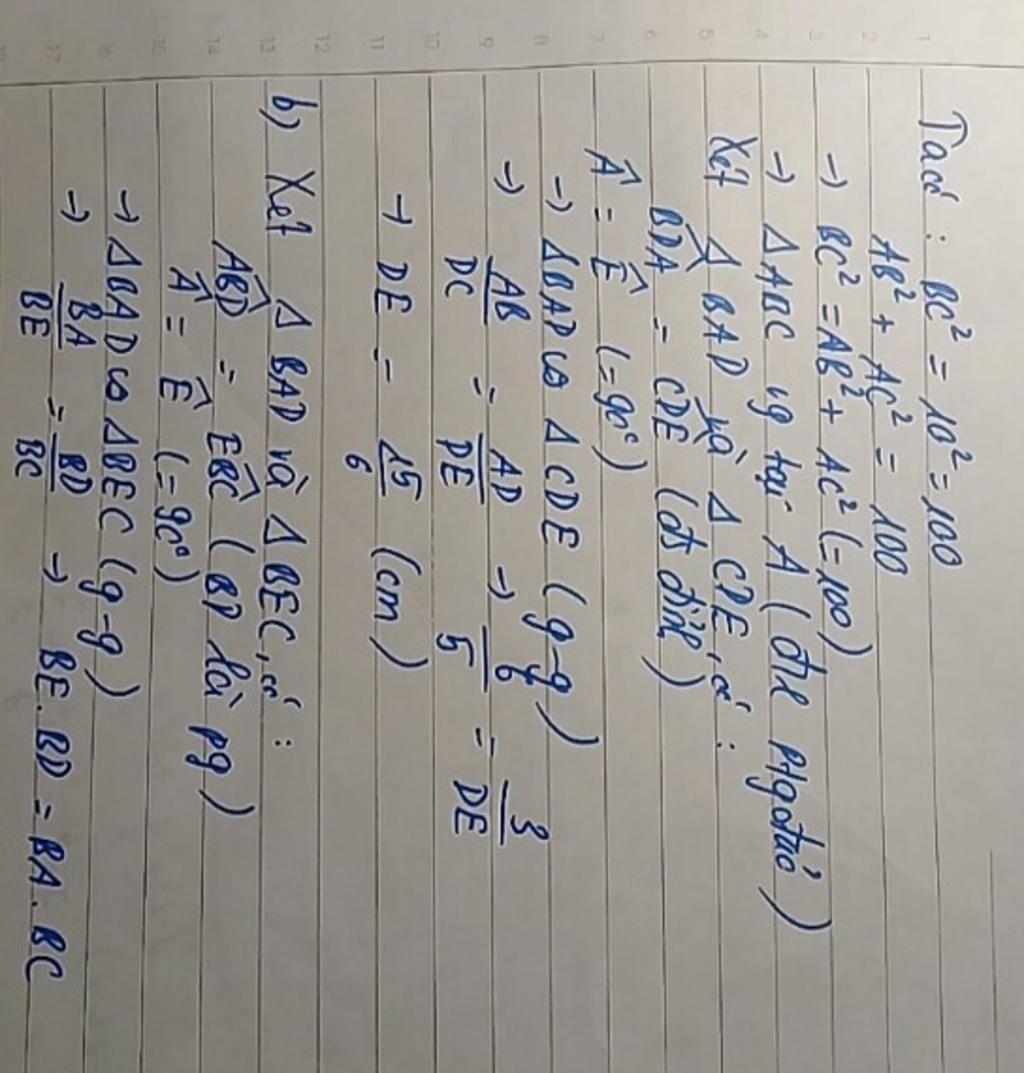 Ta có : BC² = 10² = 100
AB² + AC² = 100
→ BC² = AB² + AC² (=100)
→ Δ ABC vg tại A (đle Pytago đảo)
Xét Δ BAD và Δ CDE, có :
BDA = CDE (đđ đỉnh)
A = E (= 90°)
→ Δ BAD ∽ Δ CDE (g-g)
→ AB/DC = AD/DE → 6/5 = 3/DE
→ DE = 15/6 (cm)
b) Xét Δ BAD và Δ BEC, có :
ABD = EBC (BD là pg)
A = E (= 90°)
→ Δ BAD ∽ Δ BEC (g-g)
→ BA/BE = BD/BC → BE . BD = BA . BC